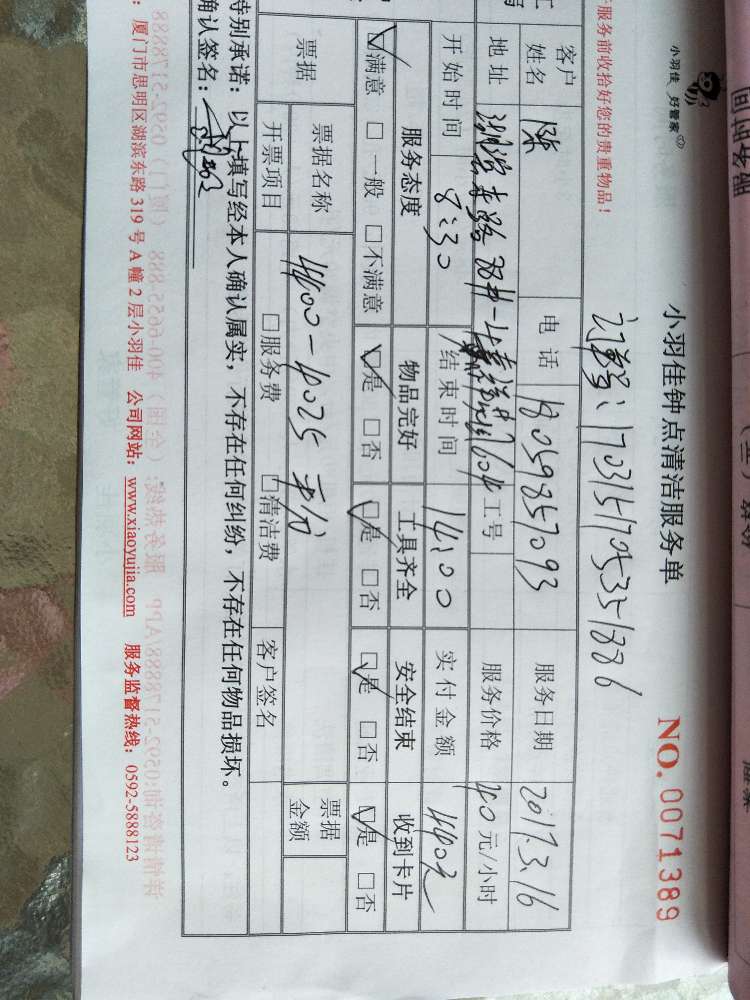 服务前收拾好您的贵重物品!
小羽佳 好管家
小羽佳钟点清洁服务单
NO. 0071389
订单号:170315705351886
客户姓名 陈 电话 18059857093 服务日期 2017.3.16
地址 工号 服务价格 40元/小时
开始时间 8:30 结束时间 14:00 实付金额
服务态度 物品完好 工具齐全 安全结束 收到卡片
☑满意 □一般 □不满意 ☑是 □否 ☑是 □否 ☑是 □否 ☑是 □否
票据 票据名称 票据金额
开票项目 □服务费 □清洁费 客户签名
特别承诺:以上填写经本人确认属实,不存在任何纠纷,不存在任何物品损坏。
确认签名:
:厦门市思明区湖滨东路319号A幢2层小羽佳 公司网站:www.xiaoyujia.com 服务监督热线:0592-5888123